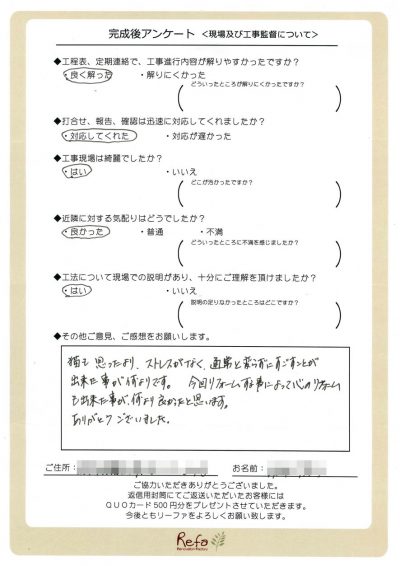 完成後アンケート <現場及び工事監督について>
◆工程表、定期連絡で、工事進行内容が解りやすかったですか?
・良く解った ・解りにくかった
どういったところが解りにくかったですか?
◆打合せ、報告、確認は迅速に対応してくれましたか?
・対応してくれた ・対応が遅かった
◆工事現場は綺麗でしたか?
・はい ・いいえ
どこが汚かったですか?
◆近隣に対する気配りはどうでしたか?
・良かった ・普通 ・不満
どういったところに不満を感じましたか?
◆工法について現場での説明があり、十分にご理解を頂けましたか?
・はい ・いいえ
説明の足りなかったところはどこですか?
◆その他ご意見、ご感想をお願いします。
猫も思ったより、ストレスがなく、通常と変らずにすごすことが
出来た事が何よりです。 今回リフォームする事によって心のリフォーム
も出来た事が、何より良かったと思います。
ありがとうございました。
ご住所: お名前:
ご協力いただきありがとうございました。
返信用封筒にてご返送いただいたお客様には
QUOカード500円分をプレゼントさせていただきます。
今後ともリーファをよろしくお願い致します。
Refa
Renovation Factory